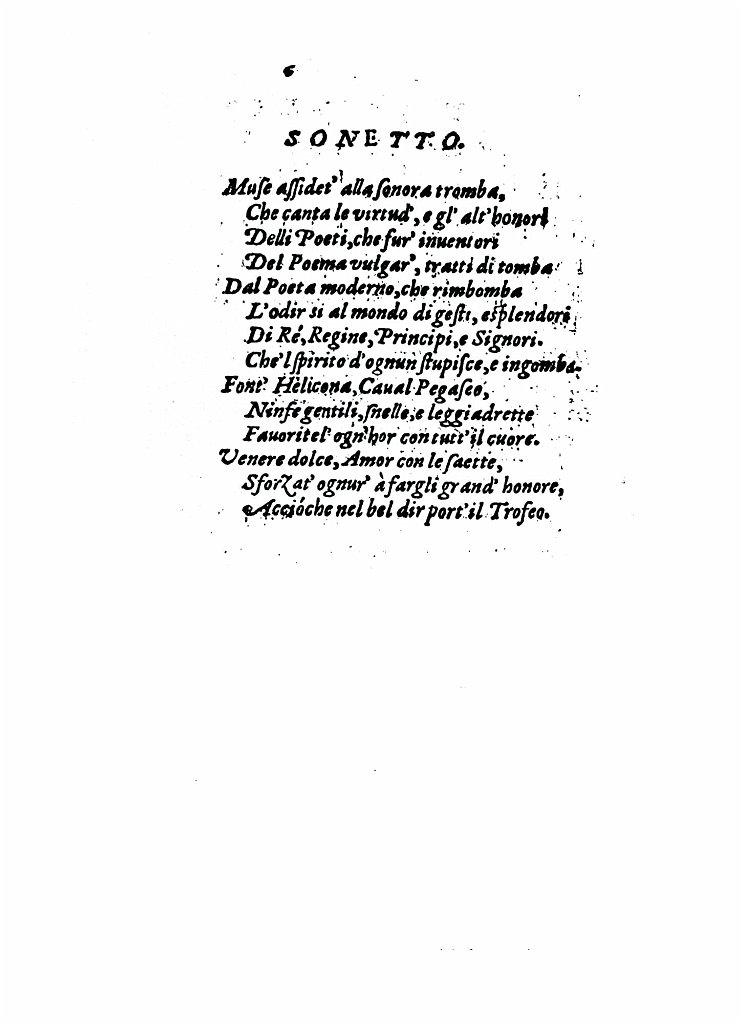 6
SONETTO.
Muſe aſſidet' alla ſonora tromba,
Che canta le virtud', e gl' alt' honori
Delli Poeti, che fur' inuentori
Del Poema vulgar', tratti di tomba
Dal Poeta moderno, che rimbomba
L'odir ſi al mondo di geſti, e ſplendori
Di Ré, Regine, Principi, e Signori.
Che'l ſpirito d'ognun ſtupiſce, e ingomba.
Font' Helicona, Caual Pegaſeo,
Ninfe gentili, ſnelle, e leggiadrette
Fauoritel' ogn'hor con tutt' il cuore.
Venere dolce, Amor con le ſaette,
Sforzat' ognur' à fargli grand' honore,
Accióche nel bel dir port' il Trofeo.